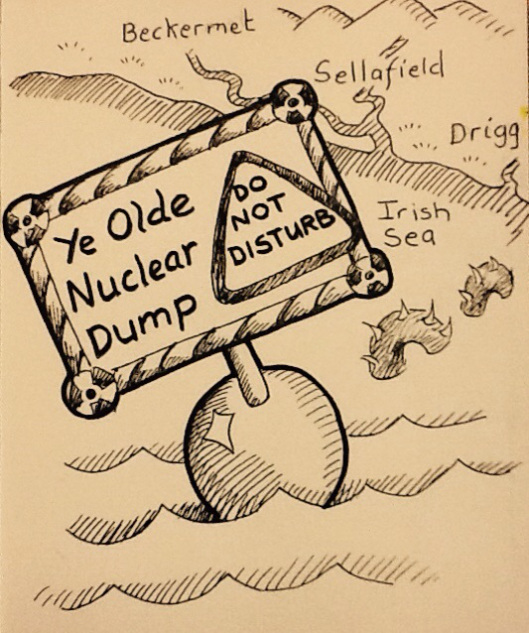 Beckermet
Sellafield
Drigg
Irish
Sea
Ye Olde
Nuclear
Dump
DO
NOT
DISTURB